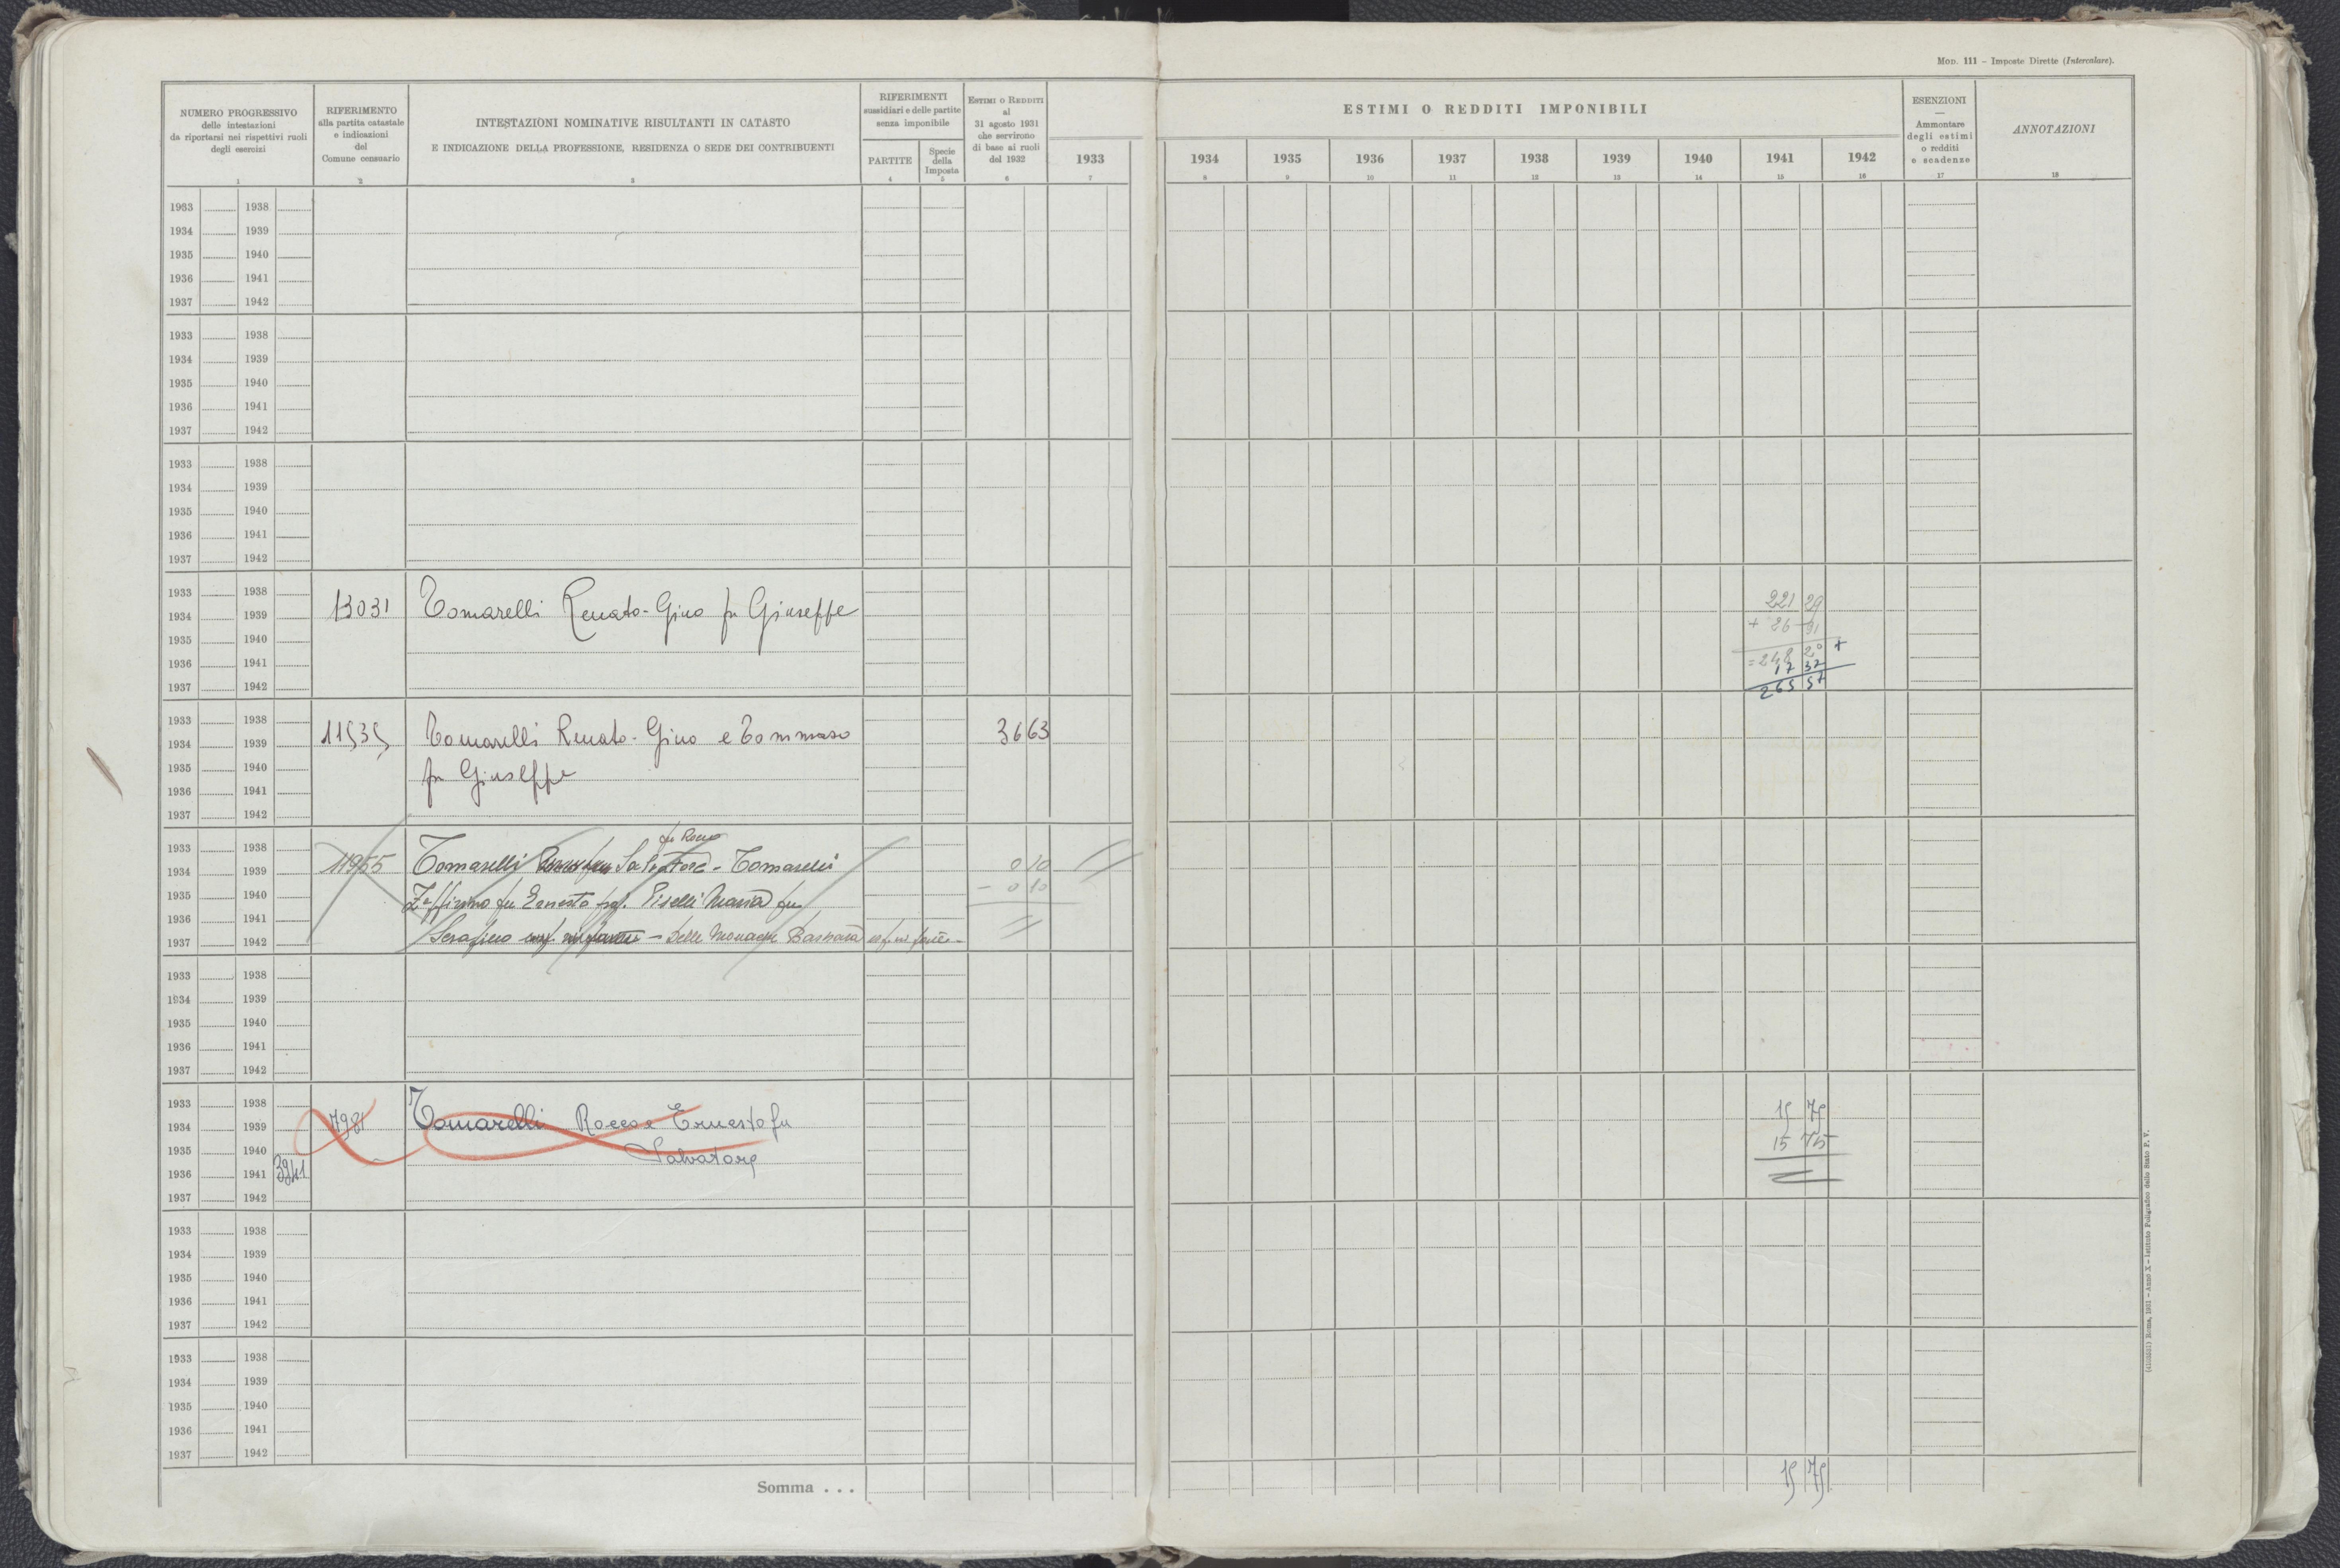 Mod. 111 – Imposte Dirette (Intercalare).
NUMERO PROGRESSIVO
delle intestazioni
da riportarsi nei rispettivi ruoli
degli esercizi
1
RIFERIMENTO
alla partita catastale
e indicazioni
del
Comune censuario
2
INTESTAZIONI NOMINATIVE RISULTANTI IN CATASTO
E INDICAZIONE DELLA PROFESSIONE, RESIDENZA O SEDE DEI CONTRIBUENTI
3
RIFERIMENTI
sussidiari e delle partite
senza imponibile
PARTITE
4
Specie
della
Imposta
5
Estimi o Redditi
al
31 agosto 1931
che servirono
di base ai ruoli
del 1932
6
ESTIMI O REDDITI IMPONIBILI
1933 1934 1935 1936 1937 1938 1939 1940 1941 1942
7 8 9 10 11 12 13 14 15 16
ESENZIONI
—
Ammontare
degli estimi
o redditi
e scadenze
17
ANNOTAZIONI
18
1933 1938
1934 1939
1935 1940
1936 1941
1937 1942
1933 1938
1934 1939
1935 1940
1936 1941
1937 1942
1933 1938
1934 1939
1935 1940
1936 1941
1937 1942
1933 1938
1934 1939
1935 1940
1936 1941
1937 1942
13031 Tomarelli Renato-Gino fu Giuseppe
221 29
+ 26 91
= 248 20 +
17 37
265 57
1933 1938
1934 1939
1935 1940
1936 1941
1937 1942
11535 Tomarelli Renato-Gino e Tommaso 36 63
fu Giuseppe
1933 1938
1934 1939
1935 1940
1936 1941
1937 1942
fu Rocco
11955 Tomarelli Salvatore - Tomarelli 0 10
Zeffirino fu Ernesto Piselli Maria fu – 0 10
Serafino – Delle Monache Barbara
1933 1938
1934 1939
1935 1940
1936 1941
1937 1942
1933 1938
1934 1939
1935 1940
1936 1941 3941
1937 1942
7981 Tomarelli Rocco e Ernesto fu 15 75
Salvatore 15 75
1933 1938
1934 1939
1935 1940
1936 1941
1937 1942
1933 1938
1934 1939
1935 1940
1936 1941
1937 1942
Somma . . . 15 75
Roma, 1931 – Anno X – Istituto Poligrafico dello Stato P. V.